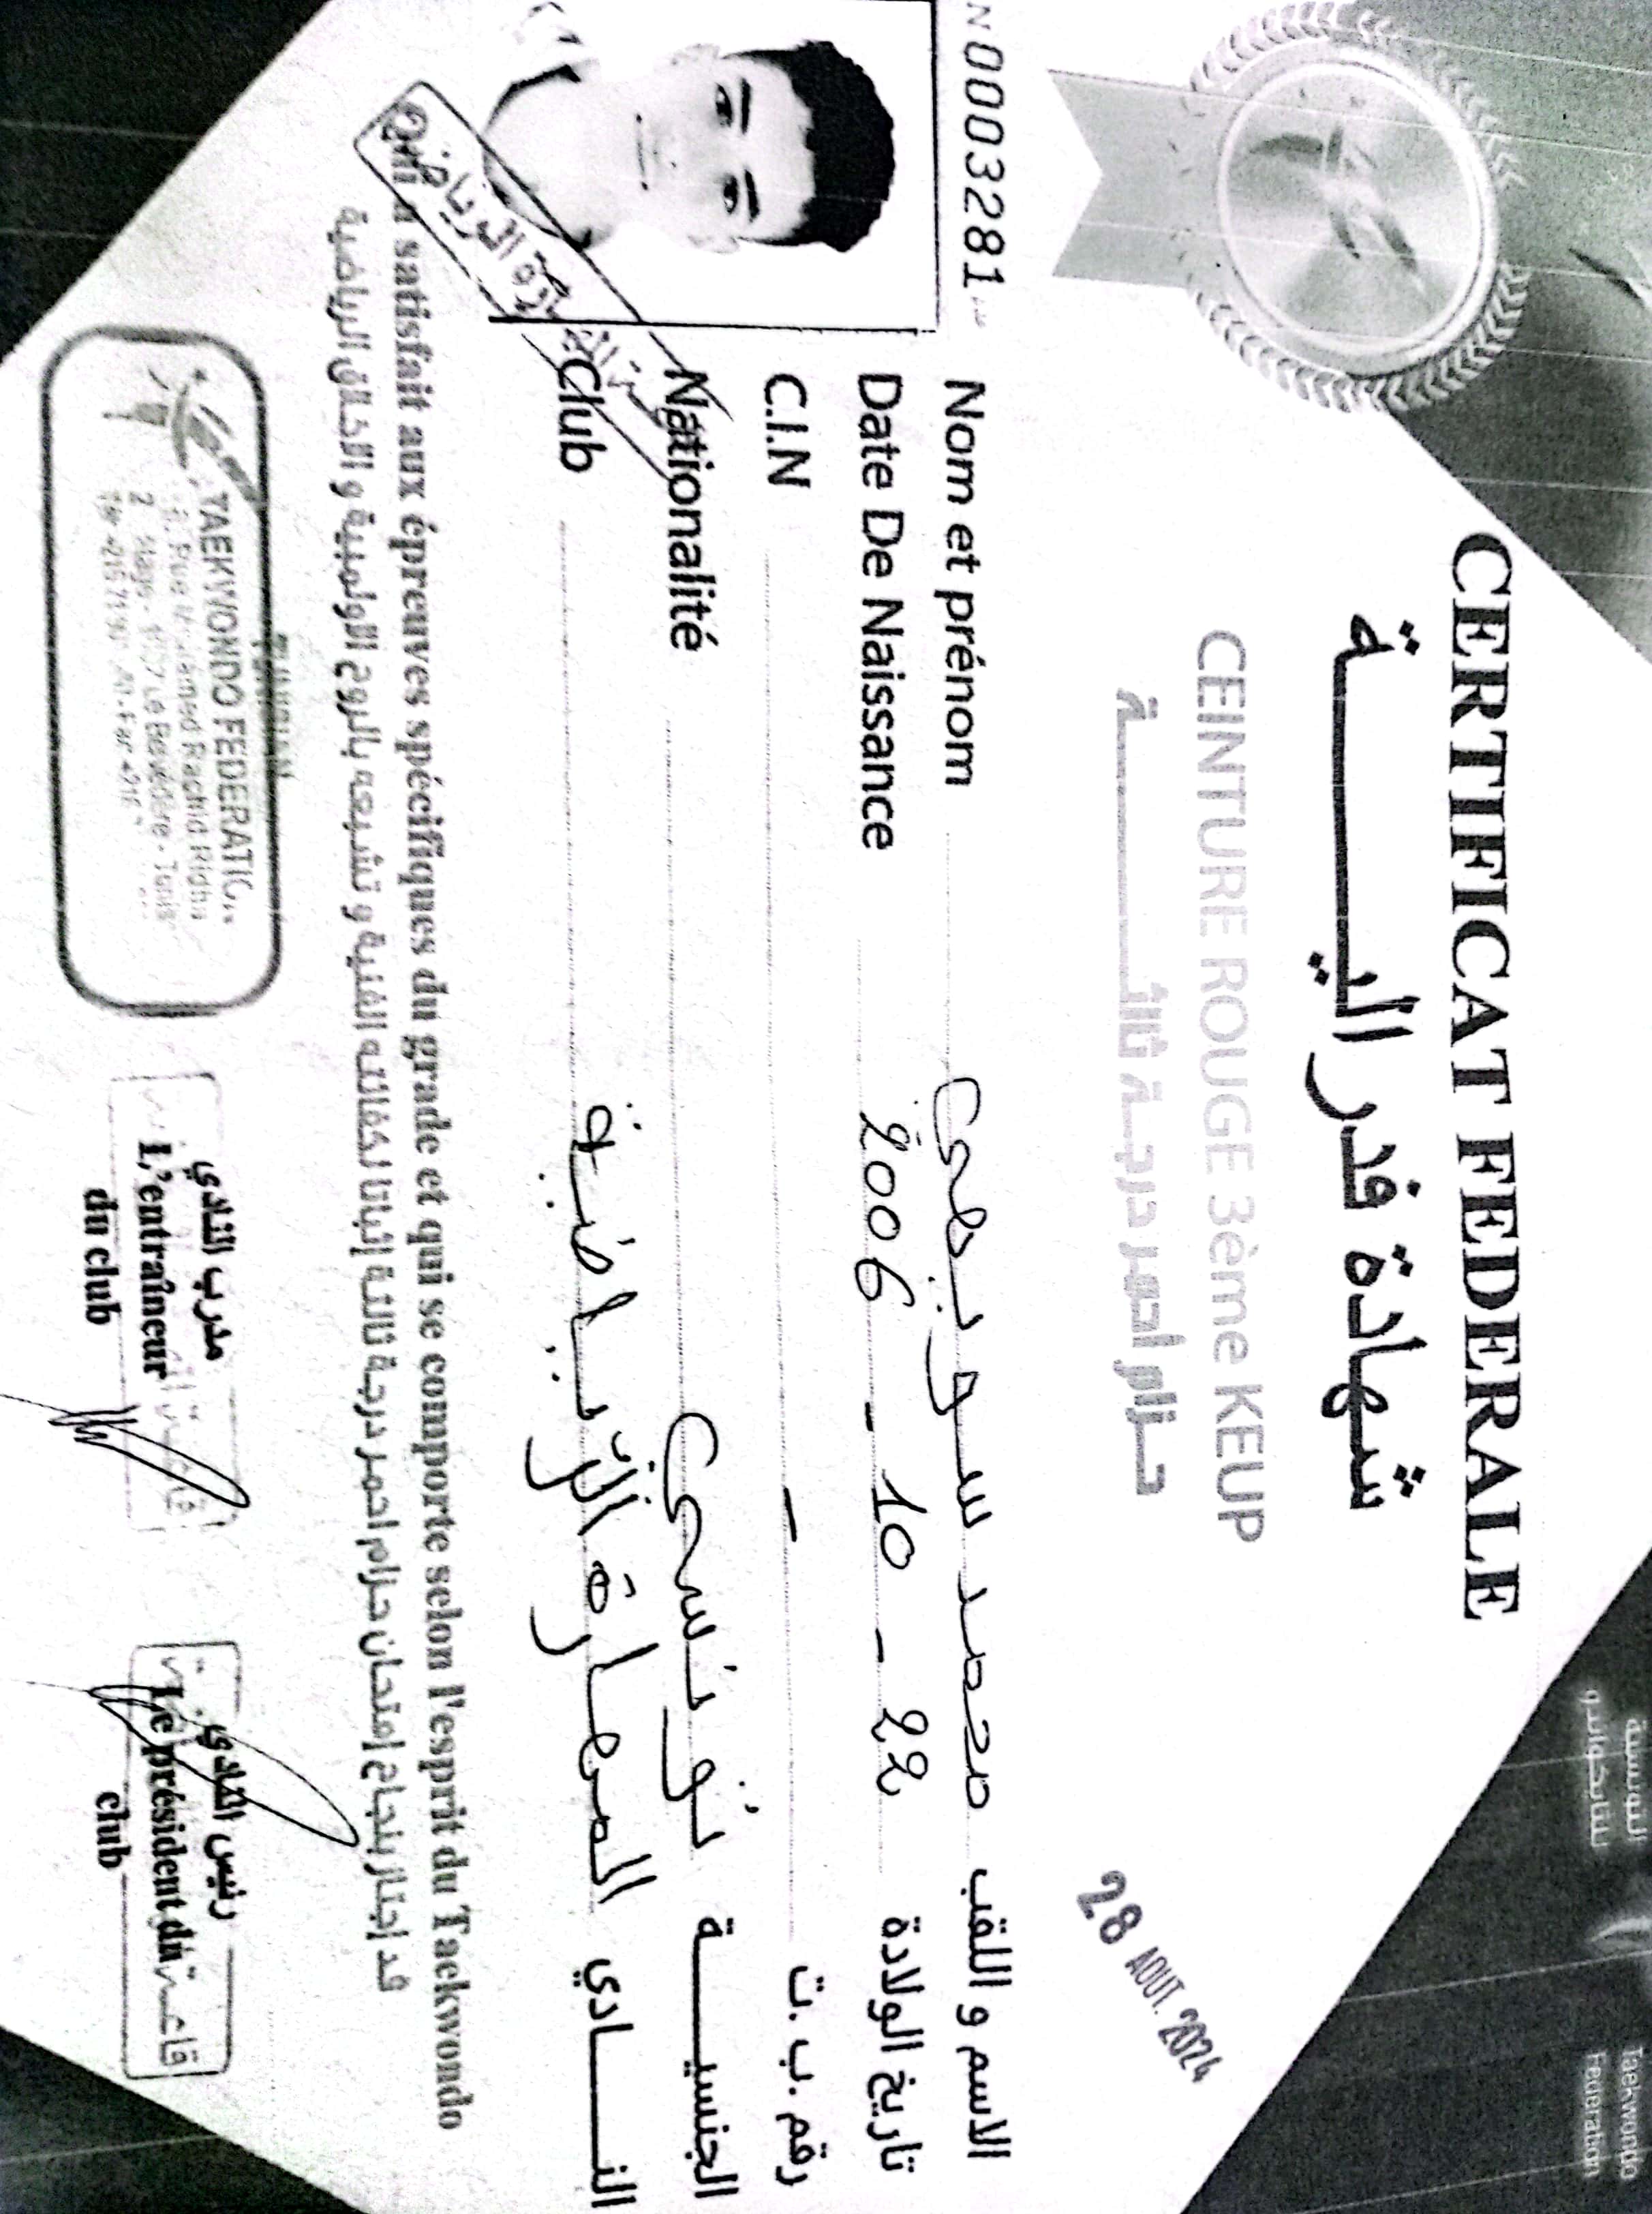 CERTIFICAT FEDERALE
شهادة فدراليـــة
CEINTURE ROUGE 3ème KEUP
حزام احمر درجة ثالثـــة
28 AOUT. 2024
N°0003281
Nom et prénom محمد سويعي الاسم و اللقب
Date De Naissance 2006 - 10 - 22 تاريخ الولادة
C.I.N - رقم ب.ت
Nationalité تونسي الجنسيـــة
Club المهارة الرياضية النـــادي
satisfait aux épreuves spécifiques du grade et qui se comporte selon l'esprit du Taekwondo
قد إجتاز بنجاح إمتحان حزام احمر درجة ثالثة إثباتا لكفائته الفنية و تشبعه بالروح الاولمبية و الخلاق الرياضية
TAEKWONDO FEDERATIO
Rue Mohamed Rachid Ridha
Le Belvédère - Tunis
مدرب النادي
L'entraîneur
du club
رئيس النادي
Le président du
club
التونسية
للتايكواندو
Taekwondo
Federation